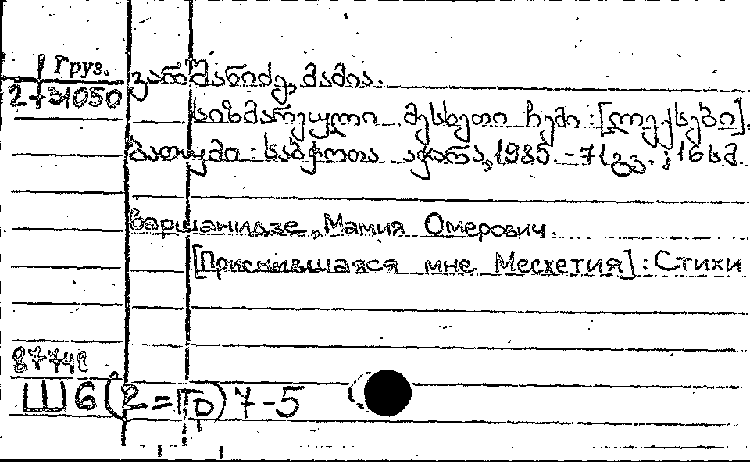 Груз.
ვარშანიძე, მამია.
2-31050
სიზმარეული მესხეთი ჩემი : [ლექსები].
ბათუმი : საბჭოთა აჭარა, 1985 - 71 გვ. ; 16 სმ.
Варшанидзе, Мамия Омерович.
[Приснившаяся мне Месхетия] : Стихи
Ш6(2=Гр)7-5